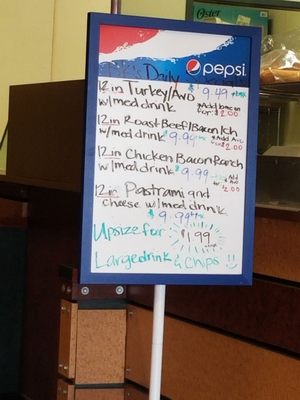 Oster
pepsi
Daily
12 in Turkey/Avo $9.49 +tax
w/med drink Add bacon
for $2.00
12 in Roast Beef/Bacon/ch
w/med drink $9.99 +tax Add Avo
for $2.00
12 in Chicken Bacon Ranch
w/med drink $9.99 +tax Add Avo
for $2.00
12 in Pastrami and
cheese w/med drink
$9.99 +tax
Upsize for: $1.99
Large drink & Chips :)